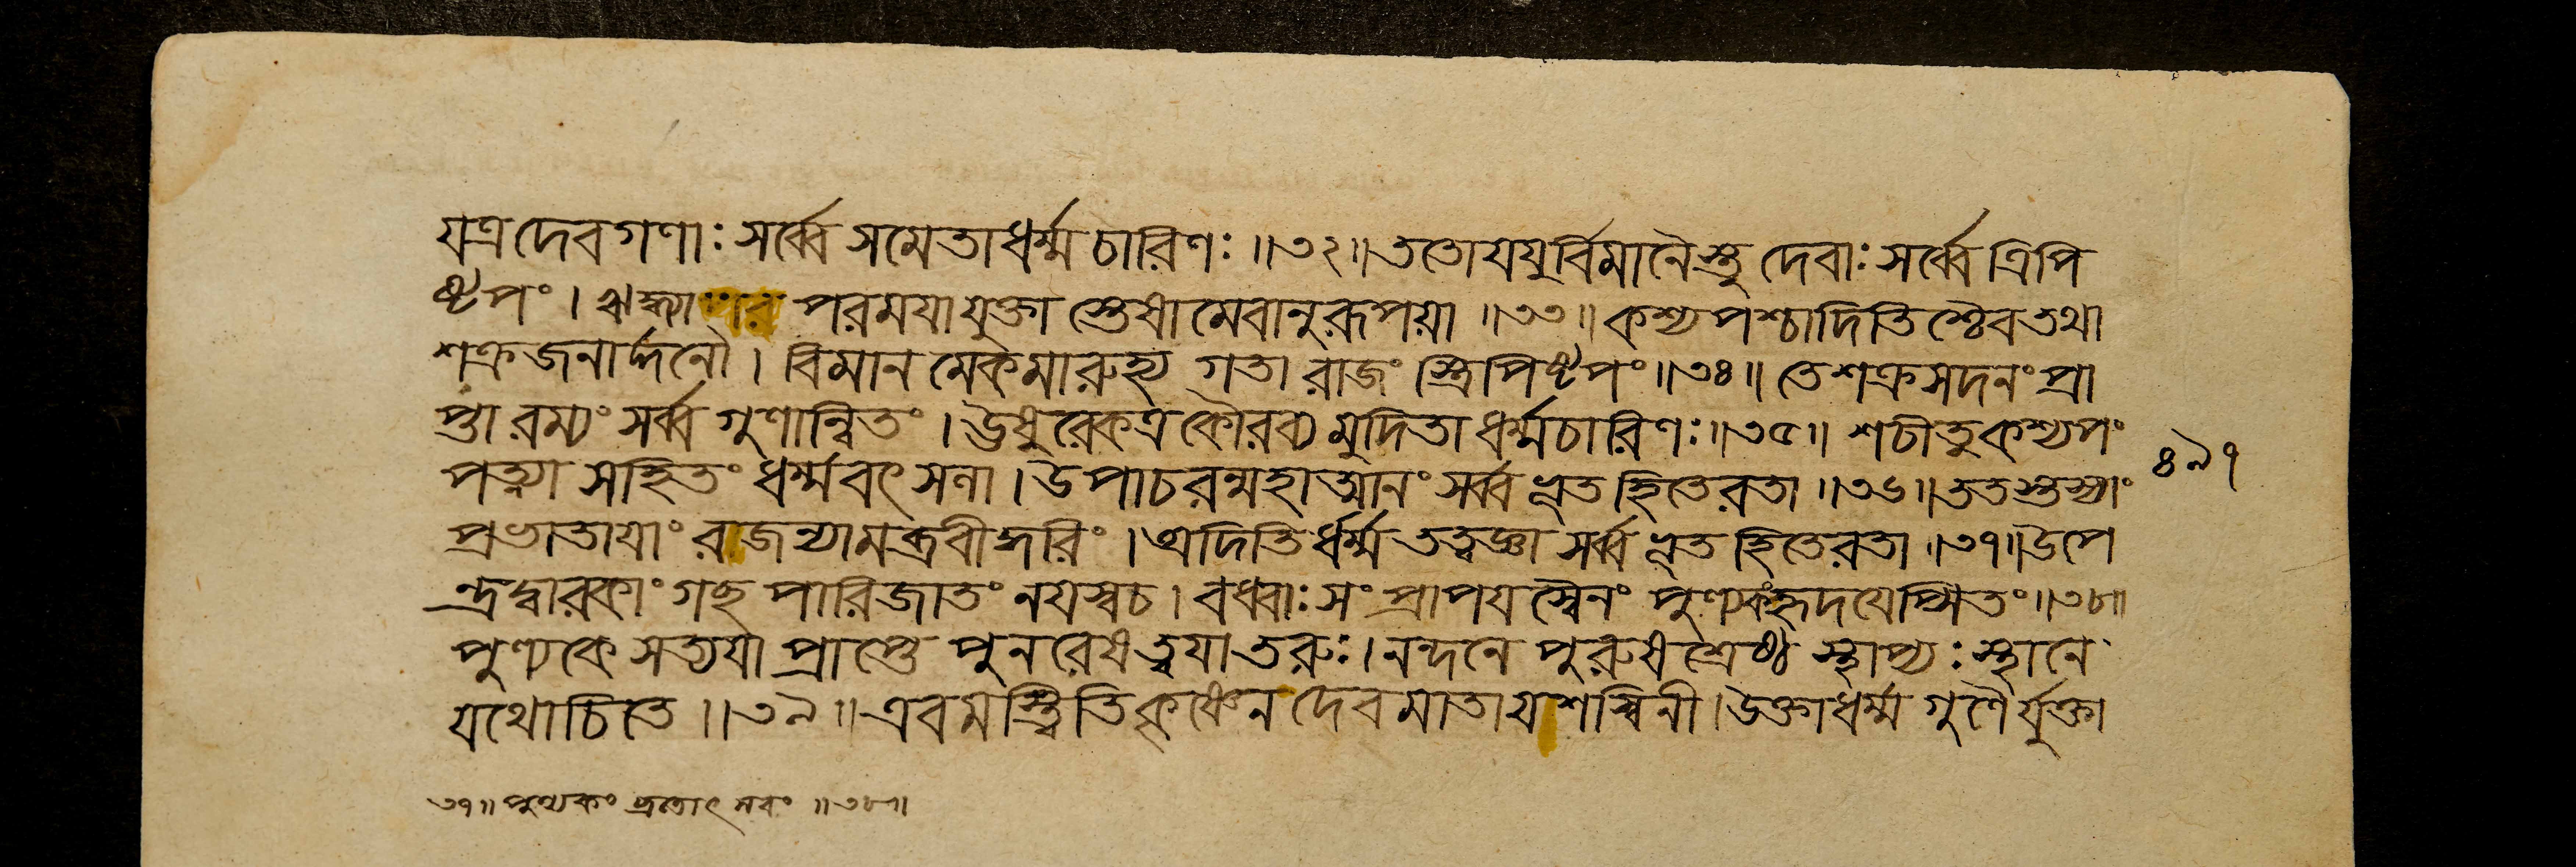 যত্রদেবগণাঃসর্ব্বেসমেতাধর্ম্মচারিণঃ॥৩২॥ততোযযুর্বিমানৈস্তুদেবাঃসর্ব্বেত্রিপি
ষ্টপং। ঋদ্ধ্যা পরমযাযুক্তাস্তেষামেবানুরূপয়া॥৩৩॥কশ্যপশ্চাদিতিশ্চৈবতথা
শক্রজনার্দ্দনৌ।বিমানমেকমারুহ্য গতারাজংস্ত্রিপিষ্টপং॥৩৪॥তেশক্রসদনংপ্রা
প্তারম্যংসর্ব্বগুণান্বিতং।ঊষুরেকত্রকৌরব্যমুদিতাধর্ম্মচারিণঃ॥৩৫॥শচীতুকশ্যপং
পত্ন্যাসহিতংধর্ম্মবৎসনা।উপাচরন্মহাত্মানংসর্ব্বভূতহিতেরতা॥৩৬॥ততস্তস্যাং
৪৯৭
প্রভাতাযাংরাজন্যামব্রবীদ্ধরিং।অদিতির্ধর্ম্মতত্বজ্ঞাসর্ব্বভূতহিতেরতা॥৩৭॥উপে
ন্দ্রদ্বারকাংগছপারিজাতংনযস্বচ।বধ্বাঃসংপ্রাপযস্বৈনংপুণ্যকংহৃদযেপ্সিতং॥৩৮॥
পুণ্যকেসত্যযাপ্রাপ্তেপুনরেষত্বযাতরুঃ।নন্দনেপুরুষশ্রেষ্ঠস্থাপ্যঃস্থানে
যথোচিতে॥৩৯॥এবমস্ত্বিতিকৃষ্ণেনদেবমাতাযশস্বিনী।উক্তাধর্ম্মগুণৈর্যুক্তা
৩৭॥পুণ্যকং ব্রতোৎসবং॥৩৮॥